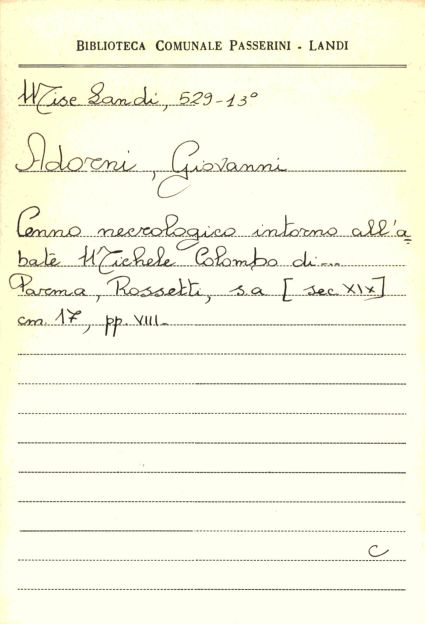 BIBLIOTECA COMUNALE PASSERINI - LANDI
Misc Landi, 529-13°
Adorni, Giovanni
Cenno necrologico intorno all'a=
bate Michele Colombo di...
Parma, Rossetti, s.a [sec XIX]
cm. 17, pp. VIII.
C